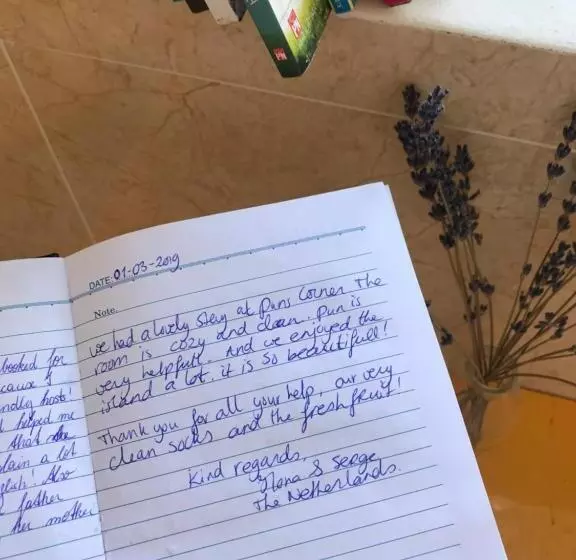 booked for
cause of
ndly host!
d helped me
that she
plain a lot
glish! Also
father
her mother
DATE: 01-03-2019
Note.
we had a lovely stay at Puns Corner The
room is cozy and clean. Pun is
very helpfull. And we enjoyed the
island a lot. it is so beautifull!
Thank you for all your help, our very
clean socks and the fresh fruit!
Kind regards,
Ilona & Serge
The Netherlands.